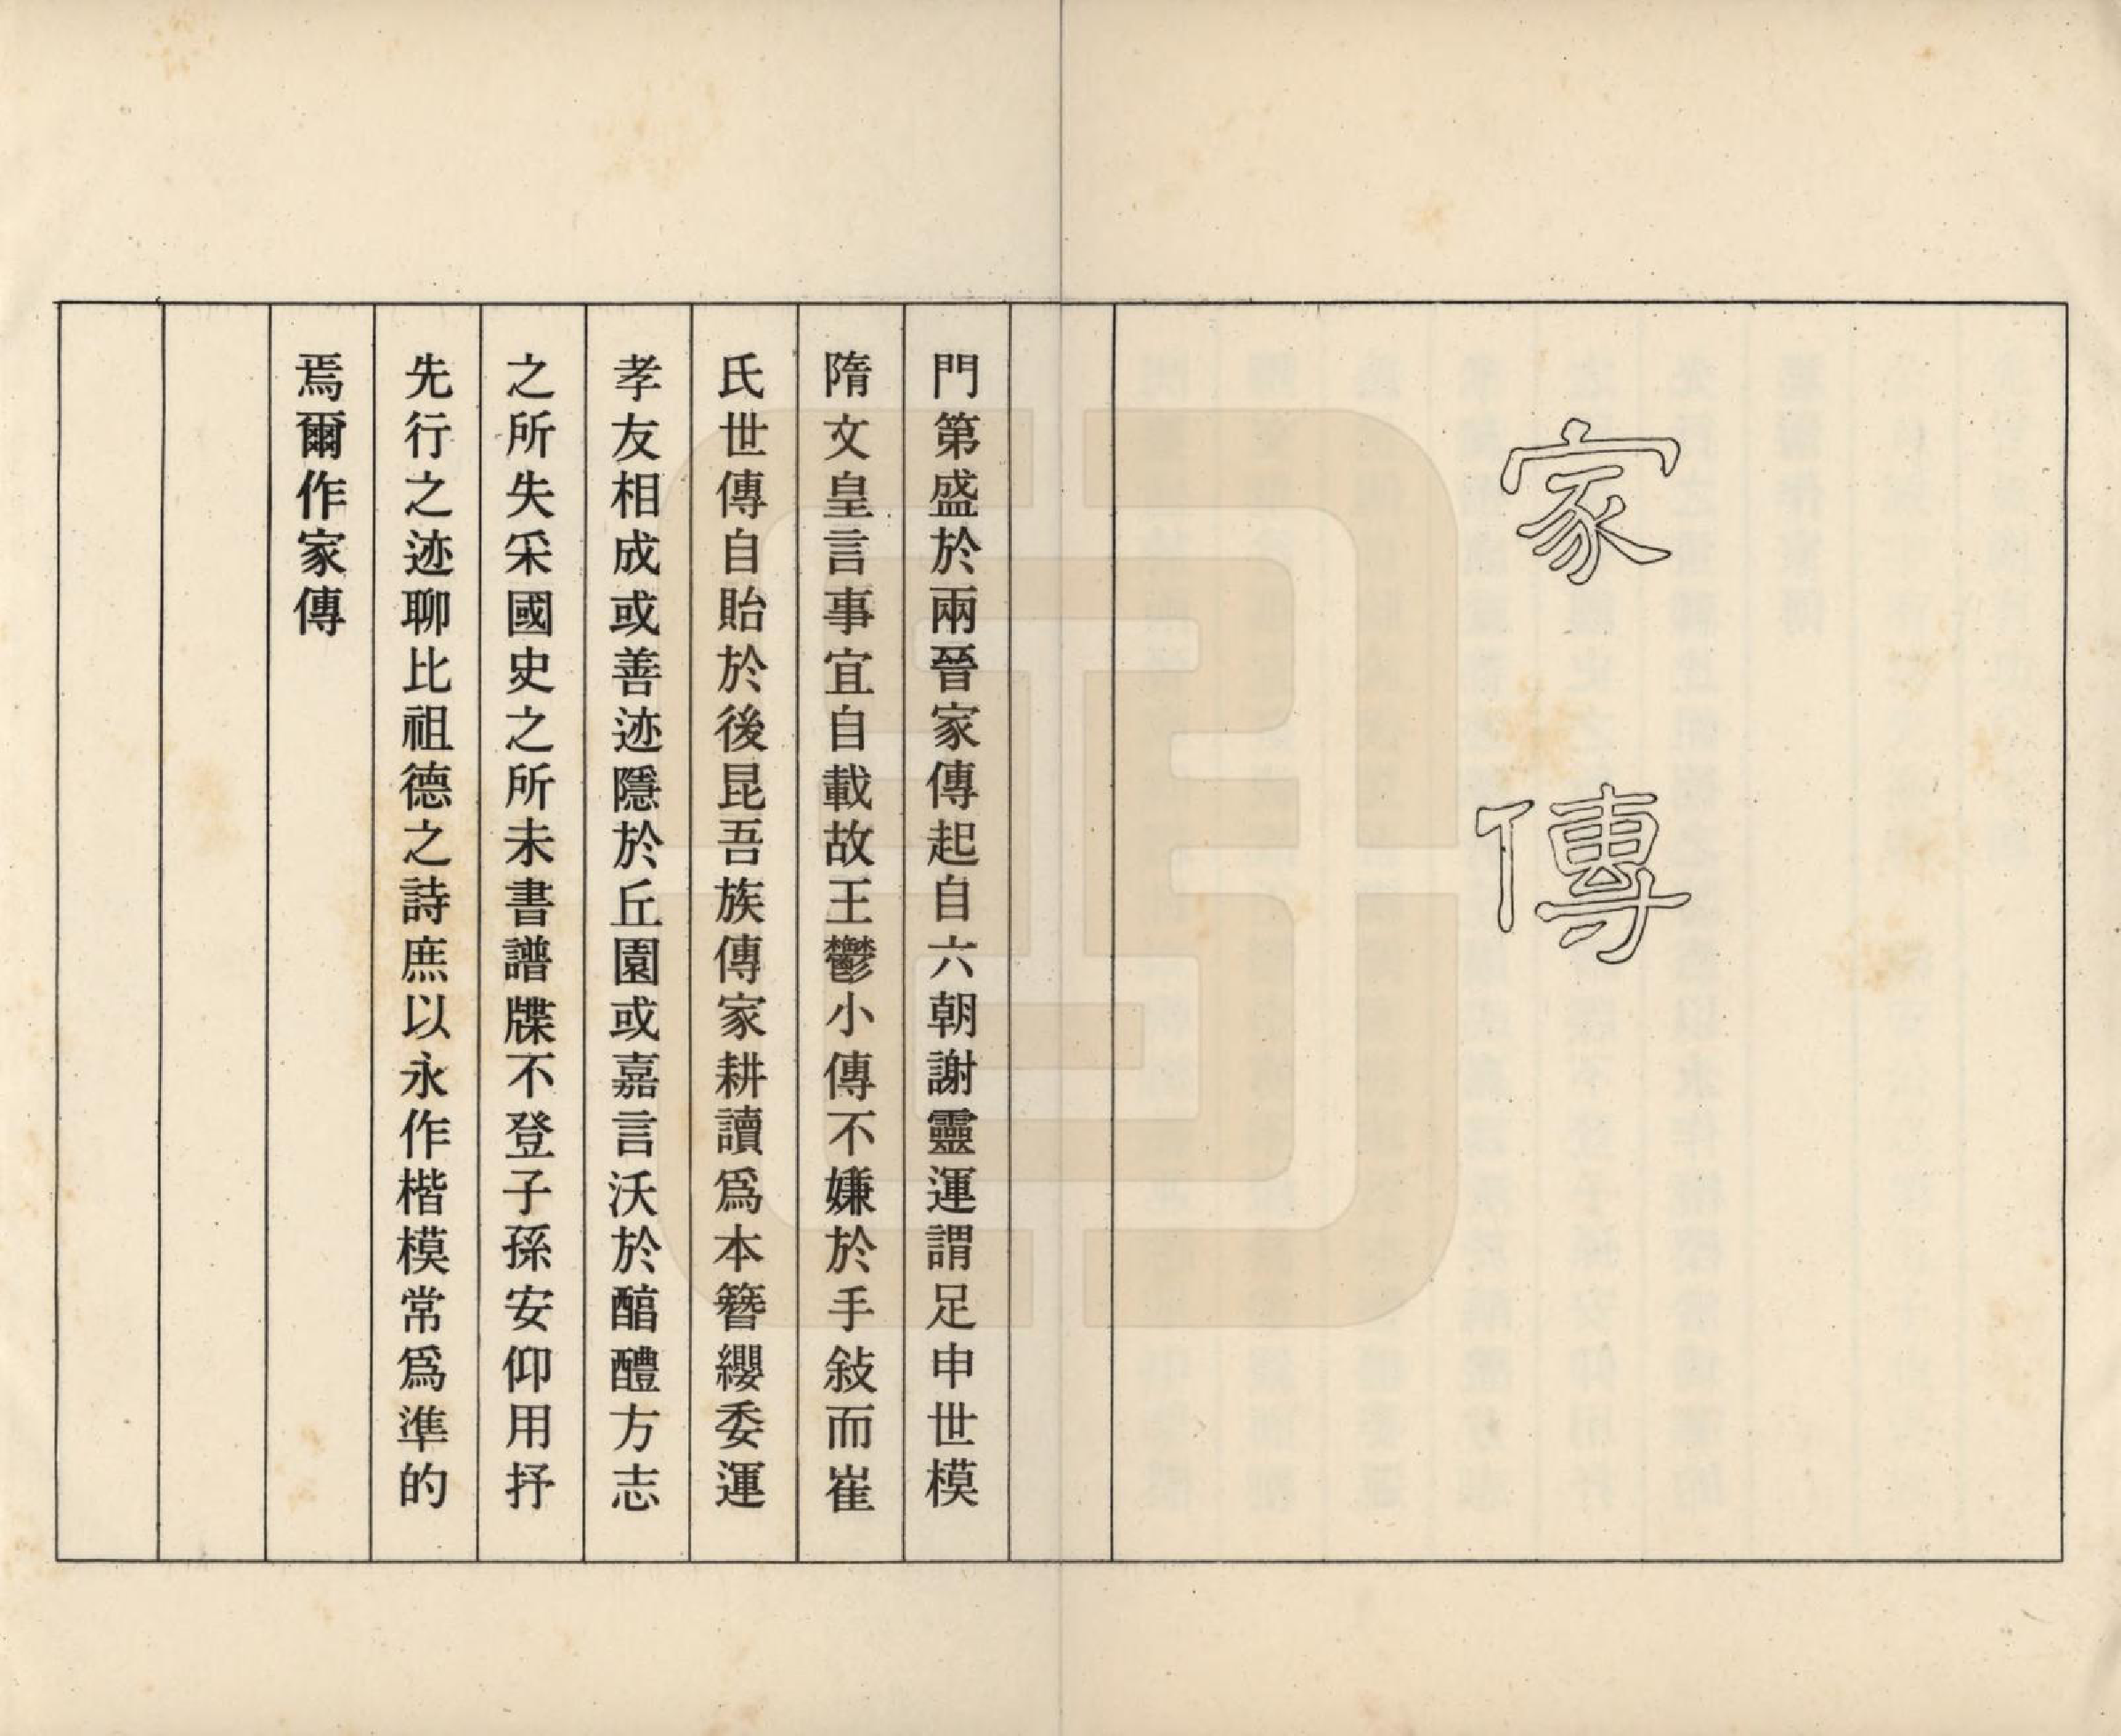 家傳
門第盛於兩晉家傳起自六朝謝靈運謂足申世模
隋文皇言事宜自載故王鬱小傳不嫌於手敍而崔
氏世傳自貽於後昆吾族傳家耕讀爲本簪纓委運
孝友相成或善迹隱於丘園或嘉言沃於醕醴方志
之所失采國史之所未書譜牒不登子孫安仰用抒
先行之迹聊比祖德之詩庶以永作楷模常爲準的
焉爾作家傳